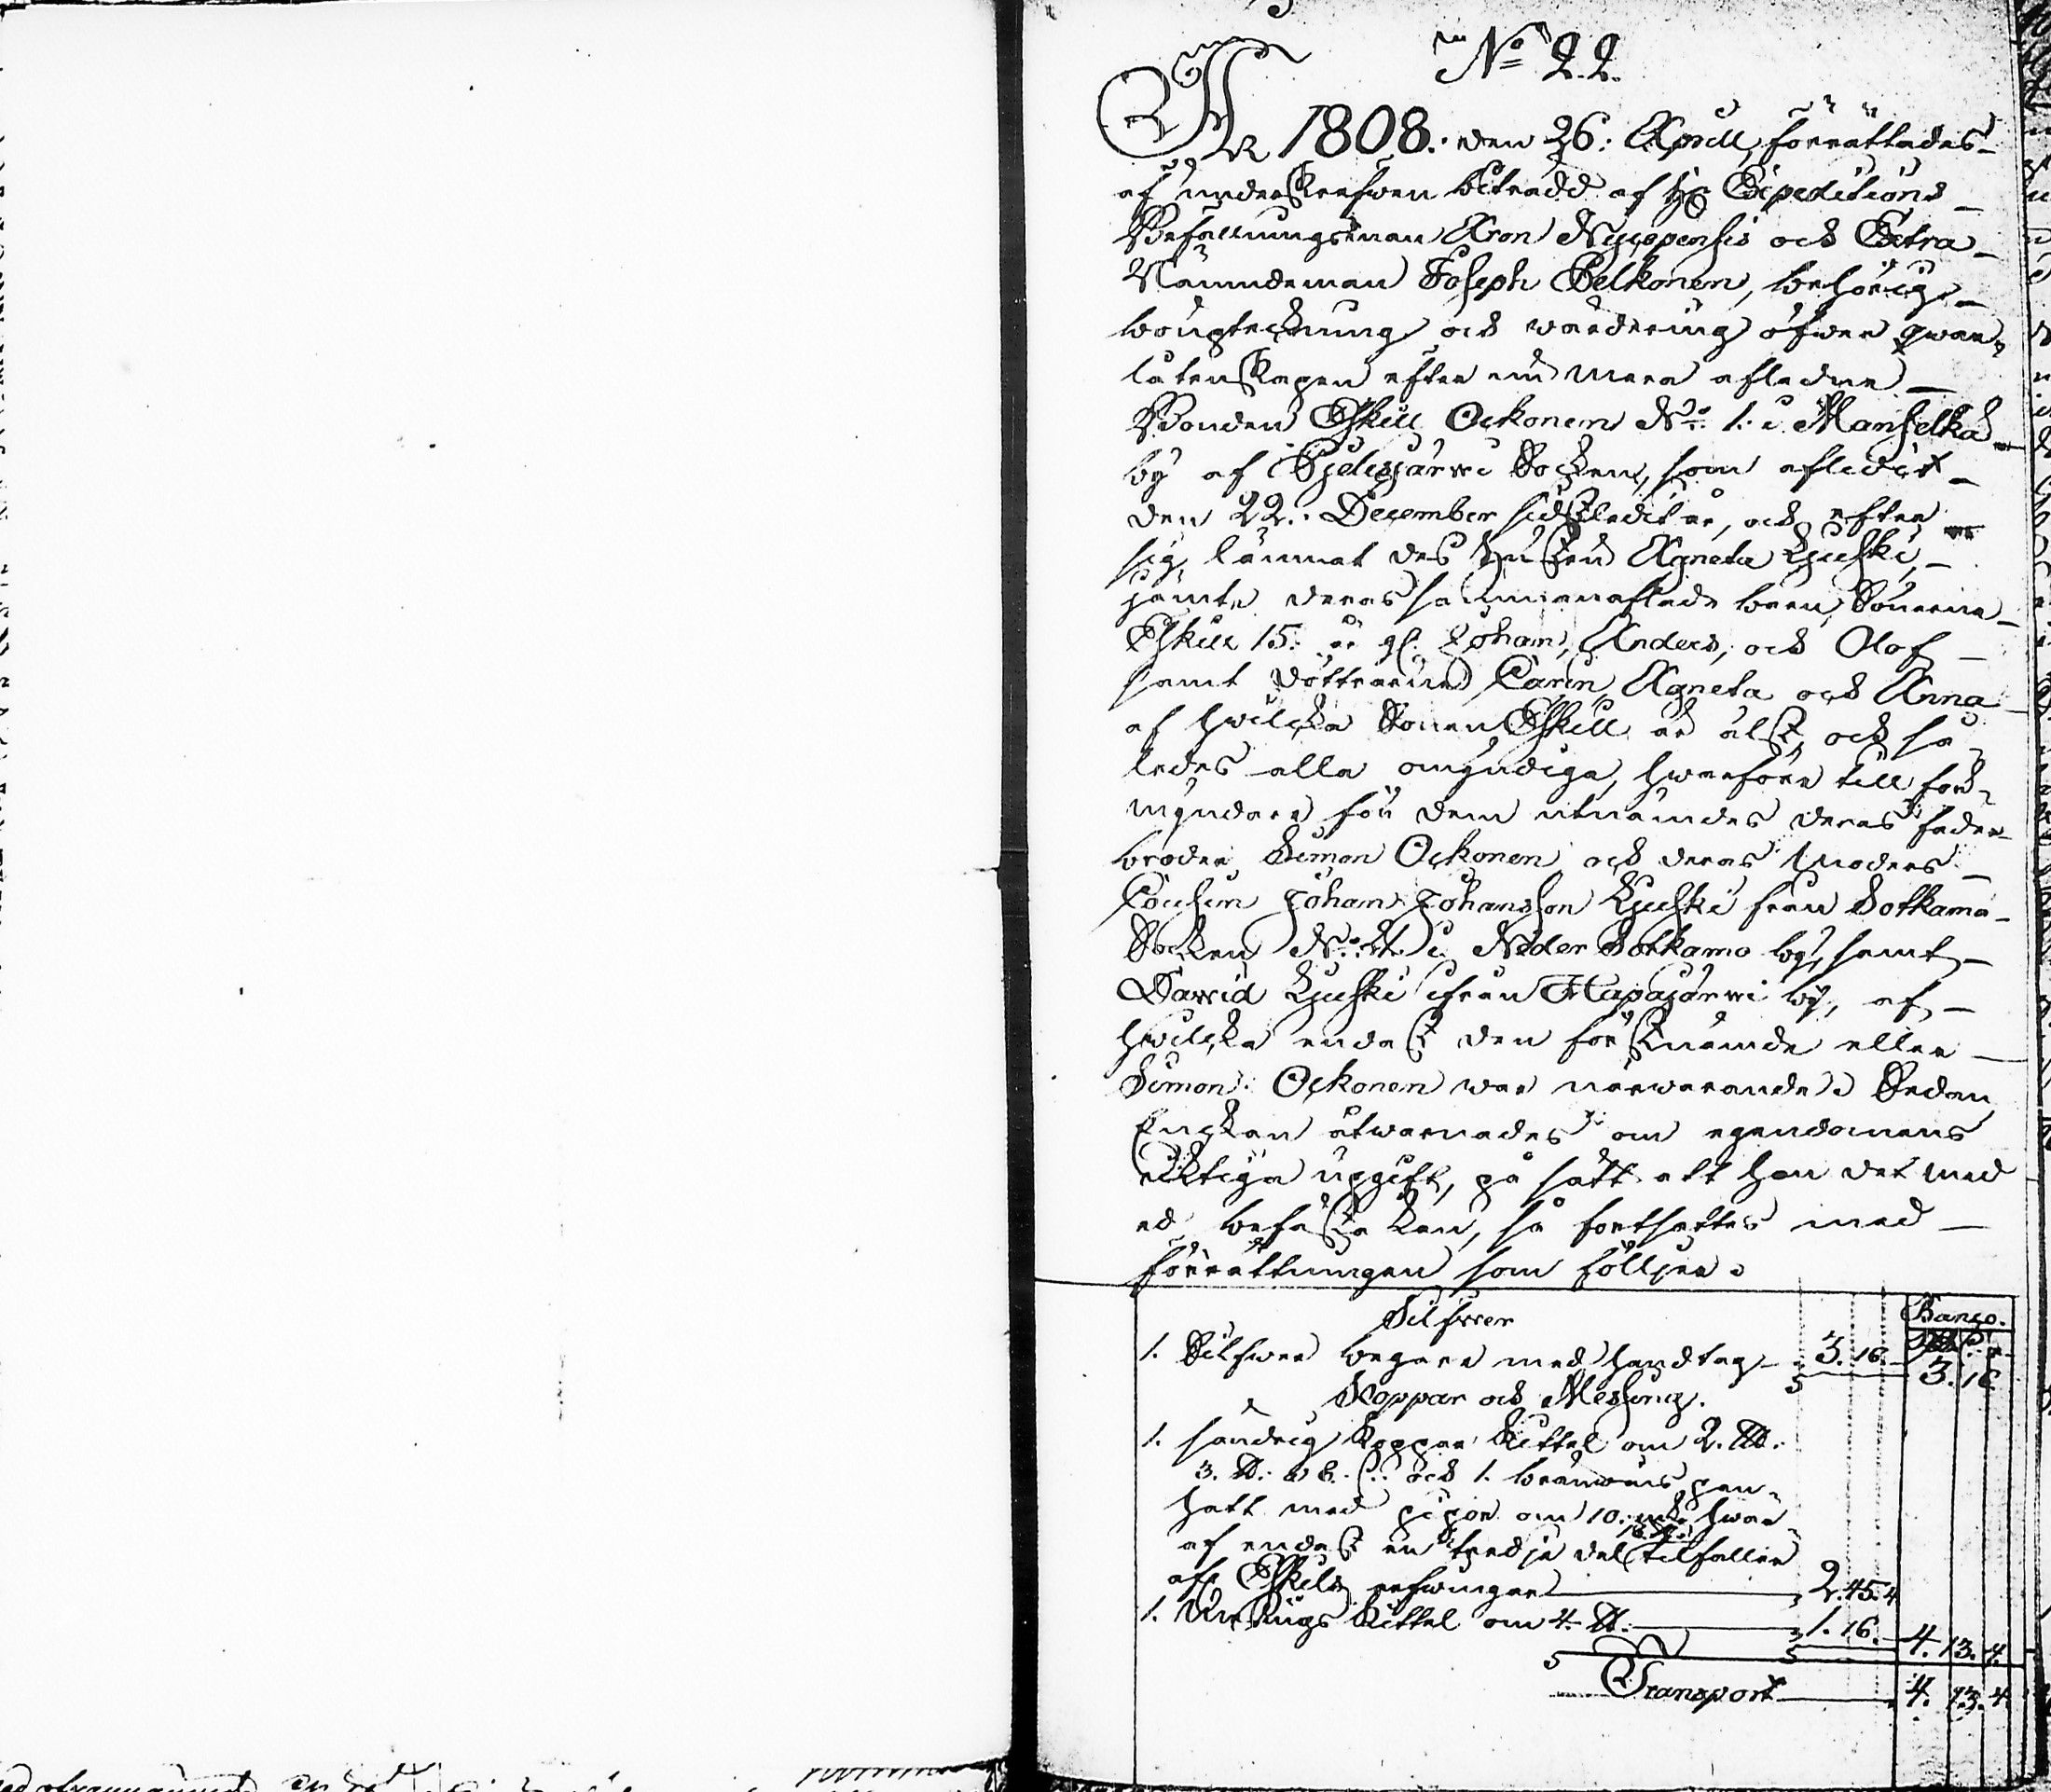 No 22.
År 1808. den 26. Aprill, förrättades
af underskrefwen biträdd af Hr Expeditions
Befallningsman Aron Nyppensis och Extra
Nämndeman Joseph Pelkonen, behörig
boupteckning och wärdering öfwer qwar-
låtenskapen efter nu mera afledne
Bonden Eskill Ockonen No 1. i Manselkä
by af Pjelisjärwi Socken, som afledit
den 22. December sidstledit år, och efter
sig lämnat des Hustru Agneta Kjuski,
jämte deras sammanaflade barn, Sönerne
Eskill 15. år gl. Johan, Anders, och Olof
samt döttrarne Carin, Agneta och Anna
af hwilcka Sonen Eskill är älst, och så-
ledes alla omyndiga, hwarföre till för-
myndare för dem utnämdes deras fader-
broder Simon Ockonen och deras Moders
Cousin Johan Johansson Kjuski från Sotkamo
Socken No i Neder Sotkamo by, samt
Dawid Kjuski ifrån Hapajärwi by, af
hwilcka endast den förstnämde eller
Simon Ockonen war närwarande. Sedan
Enckan åtwarnades om egendomens
ricktiga upgift, på sätt att hon det med
ed befästa kan, så fortsattes med
förrättningen som föllier.
Silfwer
Banco.
1. Silfwer begare med handtag 3. 16. 3. 16
Koppar och Messing.
1. söndrig Koppar Kittel om 2. lb.
3. lb. och 1. bränwins pan-
hatt med pipor om 10. hwar-
af endast en tredje del tilfaller
afl. Eskils arfwingar 2. 45. 4
1. Kittel om 4. lb. 1. 16. 4. 13. 4.
Transport 4. 13. 4.